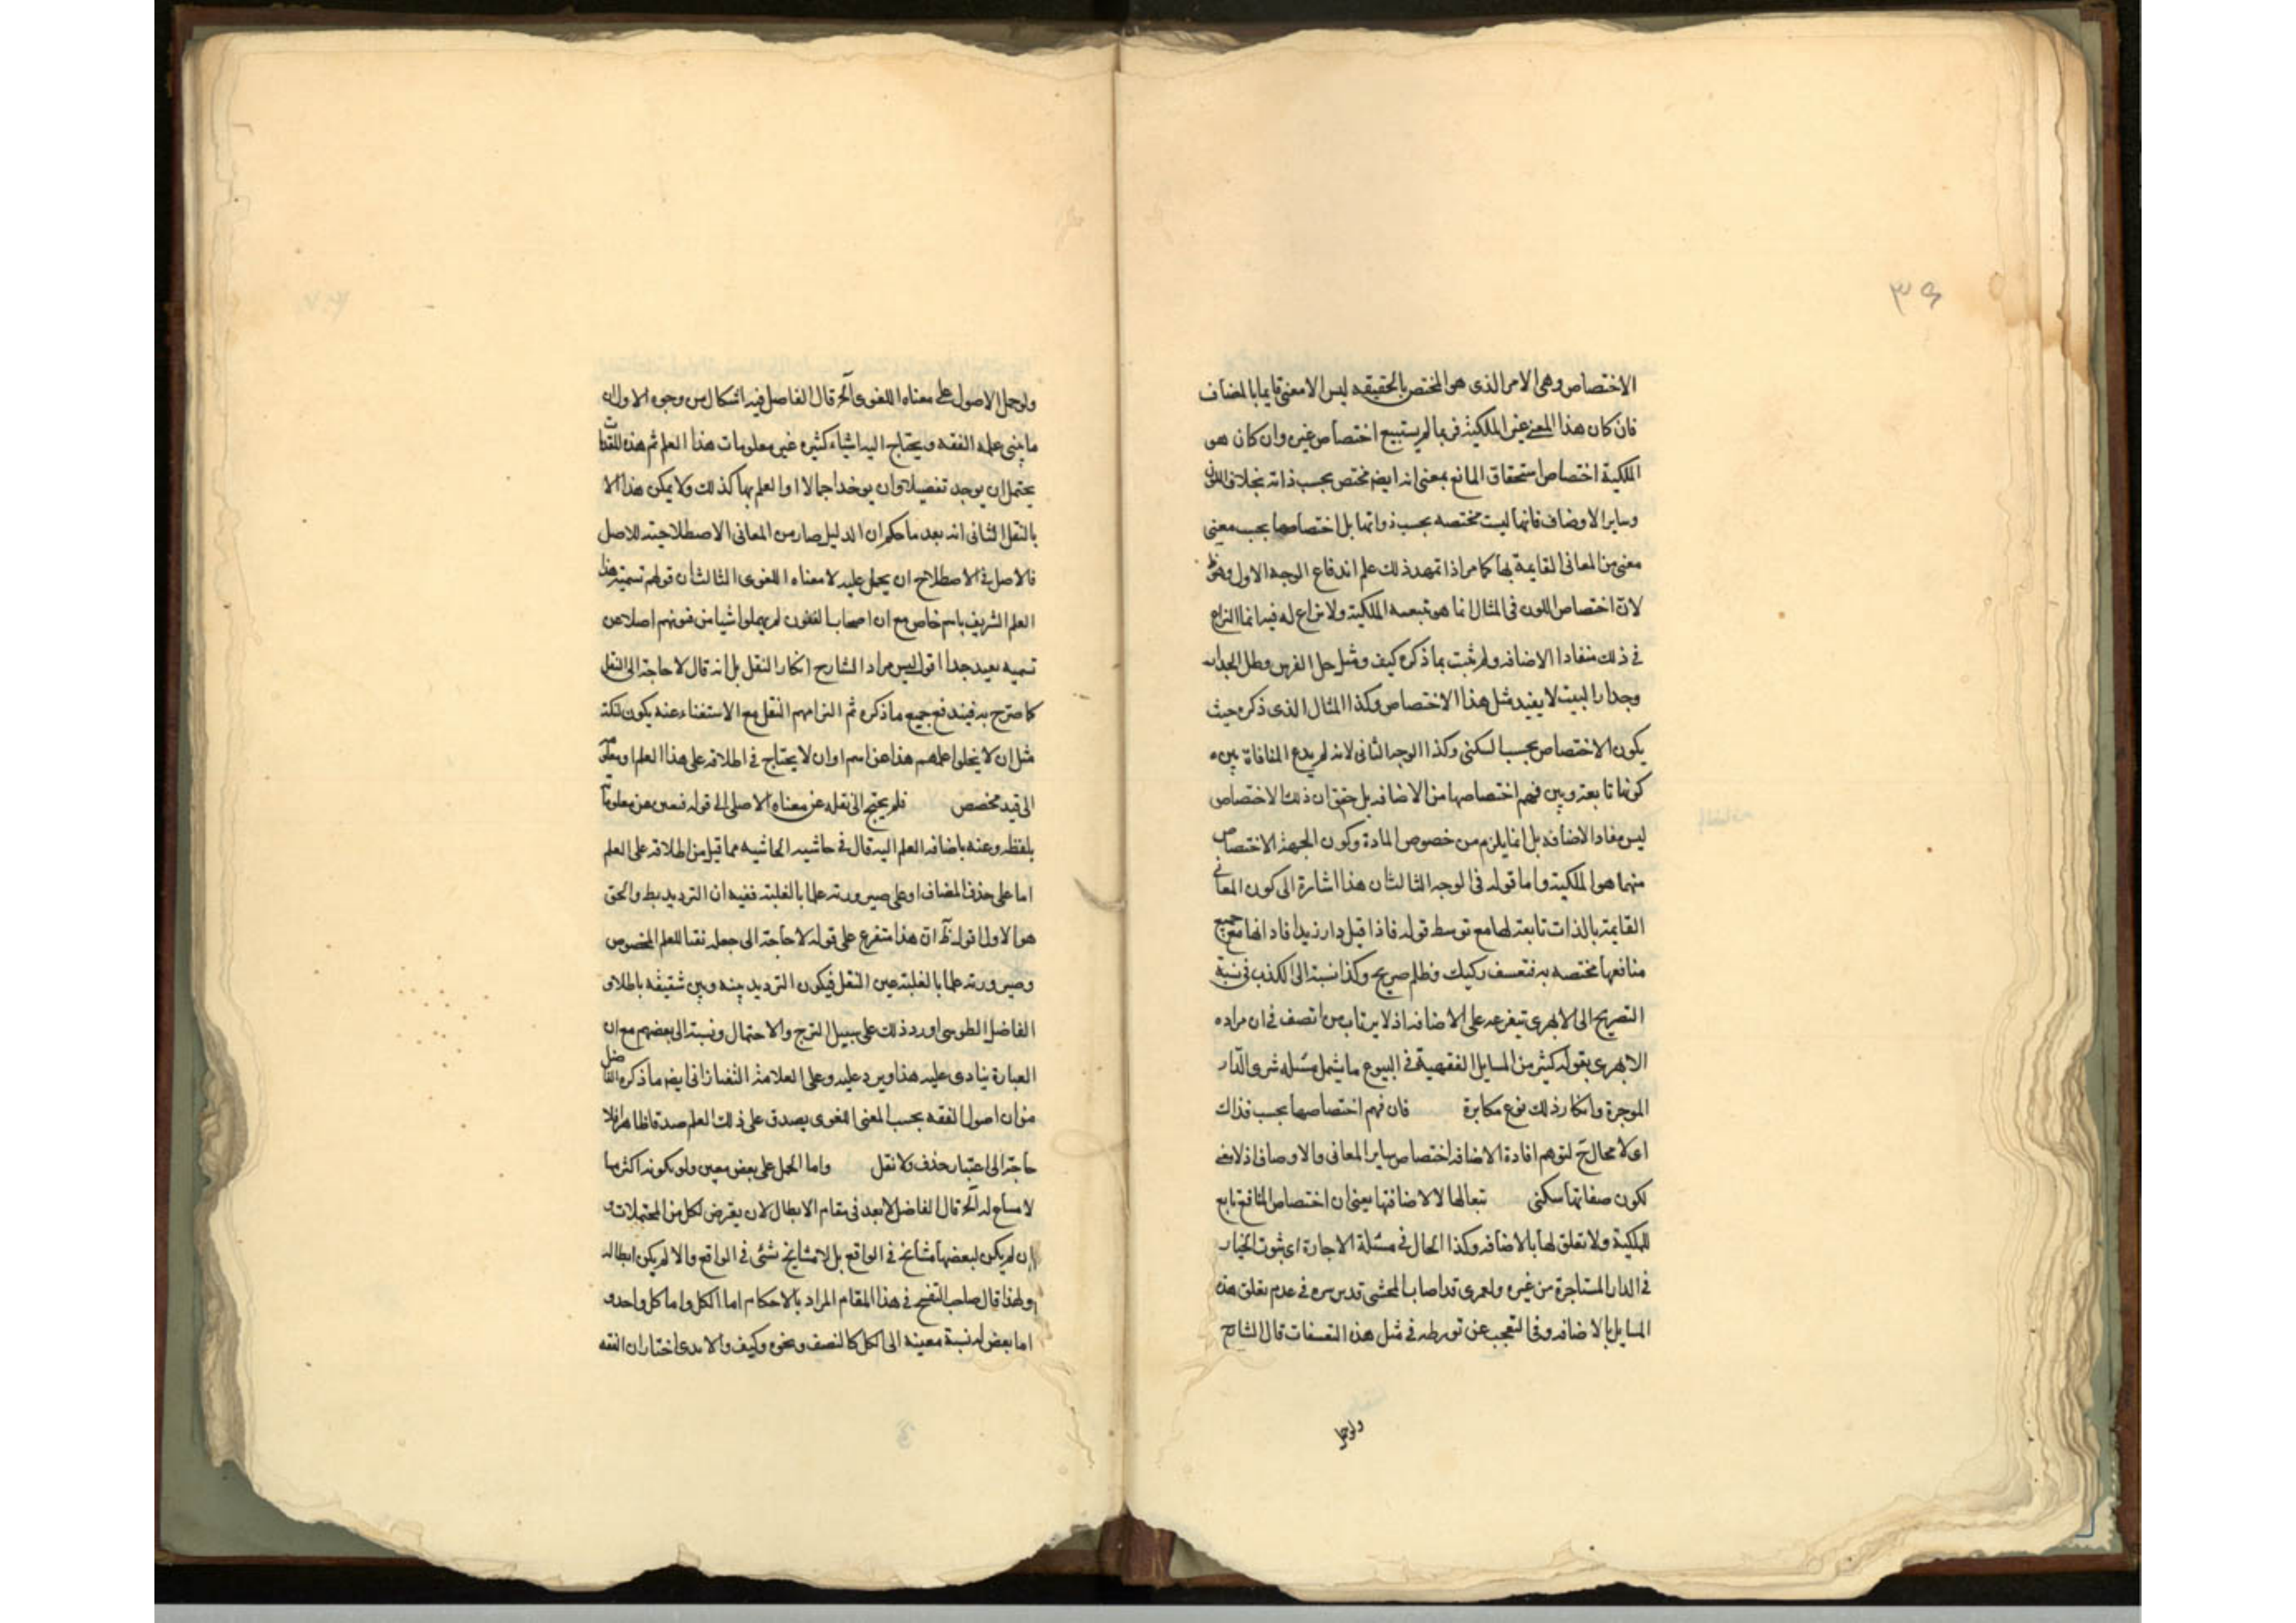 ٣٩
الاختصاص وهى الامر الذى هو المختص بالحقيقه ليس الا معنى قايما بالمضاف
فان كان هذا المعنى غير الملكية فربما لم يستتبع اختصاص غيره وان كان هو
الملكية اختصاص استحقاق المانع بمعنى انه ايضه مختص بحسب ذاته بخلاف اللون
وساير الاوضاف فانها ليست مختصه بحسب ذواتها بل اختصاصها بحسب معنى
معنى من المعانى القايمة بها كما مر اذا تمهد ذلك علم اندفاع الوجه الاول وهو ظ
لان اختصاص اللون فى المثال انما هو تبعيه الملكية ولا نزاع له فيه انما النزاع
فى ذلك مفادا الاضافه ولم يثبت بما ذكره كيف ومثل جل الفرس وظل الجدار
وجدار البيت لا يفيد مثل هذا الاختصاص وكذا المثال الذى ذكره حيث
يكون الاختصاص بحسب السكنى وكذا الوجه الثانى لانه لم يدع المنافاة بين
كونها تابعة وبين فهم اختصاصها من الاضافه بل حقق ان ذلك الاختصاص
ليس مفاد الاضافه بل انما يلزم من خصوص المادة وكون الجهة الاختصاص
منهما هو الملكية واما قوله فى الوجه الثالث ان هذا اشارة الى كون المعانى
القايمة بالذات تابعة لها مع توسط قوله فاذا قيل دار زيد افاد انها مع جميع
منافعها مختصه به فتعسف ركيك وظلم صريح وكذا نسبة الى الكذب فى نسبة
التصريح الى الابهرى بتفرعه على الاضافه اذ لا يرتاب من اتصف فى ان مراده
الابهرى بقوله كثير من المسايل الفقهية فى البيوع ما يشمل مسئله شرى الدار
الموجرة وانكار ذلك نوع مكابرة فان فهم اختصاصها بحسب فذاك
اى لا محال ح لتوهم افادة الاضافه اختصاص ساير المعانى والاوصاف اذ لا معنى
لكون صفاتها سكنى تبعا لها لا لاضافتها يعنى ان اختصاص المنافع تابع
للملكية ولا تعلق لها بالاضافه وكذا الحال فى مسئلة الاجارة اى ثبوت الخيار
فى الدار المستاجرة من غيره ولعمرى قد اصاب المحشى قدس سره فى عدم تعلق هذه
المسايل بالاضافه وفى التعجب عن تورطه فى مثل هذه التعسفات قال الشارح
ولو حمل
ولو حمل الاصول على معناه اللغوى آلخ قال الفاضل فيه اشكال من وجوه الاول ان
ما يبنى عليه الفقه ويحتاج اليه اشياء كثيره غير معلومات هذا العلم ثم هذه
يحتمل ان يوجد تفصيلا وان يوخذ اجمالا او العلم بها كذلك ولا يمكن هذا الا
بالنقل الثانى انه بعد ما حكم ان الدليل صار من المعانى الاصطلاحية للاصل
فالاصل فى الاصطلاح ان يحمل عليه لا معناه اللغوى الثالث ان قولهم تسمية هذا
العلم الشريف باسم خاص مع ان اصحاب الفنون لم يهملوا شيا من فنونهم اصلا من
تسميه بعيد جدا اقول ليس مراد الشارح انكار النقل بل انه قال لا حاجة الى النقل
كما صرح به فيندفع جميع ما ذكره ثم التزامهم النقل مع الاستغناء عنه يكون لنكتة
مثل ان لا يخلوا علمهم هذا عن اسم او ان لا يحتاج فى اطلاقه على هذا العلم
الى قيد مخصص فلم يحتج الى نقله عن معناه الاصلى الى قوله فيعبر عن معلوماته
بلفظه وعنه باضافه العلم اليه قال فى حاشيه الحاشيه مما قيل من اطلاقه على العلم
اما على حذف المضاف او على صيرورته علما بالغلبة ففيه ان الترديد بط والحق
هو الاول اقول ظ ان هذا متفرع على قوله لا حاجة الى جعله نقبا للعلم المخصوص
وصيرورته علما بالغلبة عين النقل فيكون الترديد بينه وبين شقيقه باطلا و
الفاضل الطوسى اورد ذلك على سبيل الترج والاحتمال ونسبة الى بعضهم مع ان
العبارة ينادى عليه هذا ويرد عليه وعلى العلامة التفتازانى ايضه ما ذكره الفاضل
من ان اصول الفقه بحسب المعنى اللغوى يصدق على ذلك العلم صدقا ظاهرا فلا
حاجة الى اعتبار حذف ولا نقل واما الحمل على بعض معين ولو بكونه اكثر مما
لا مساع له آلخ قال الفاضل لا بعد فى مقام الابطال لان يعرض لكل من المحتملات و
ان لم يكن لبعضها مشايخ فى الواقع بل لا مشايخ شئى فى الواقع والا لم يكن ابطاله
ولهذا قال صاحب التنقيح فى هذا المقام المراد بالاحكام اما الكل واما كل واحد و
اما بعض له نسبة معينه الى الكل كالنصف ونحوه وكيف والامدى اختار ان الفقه